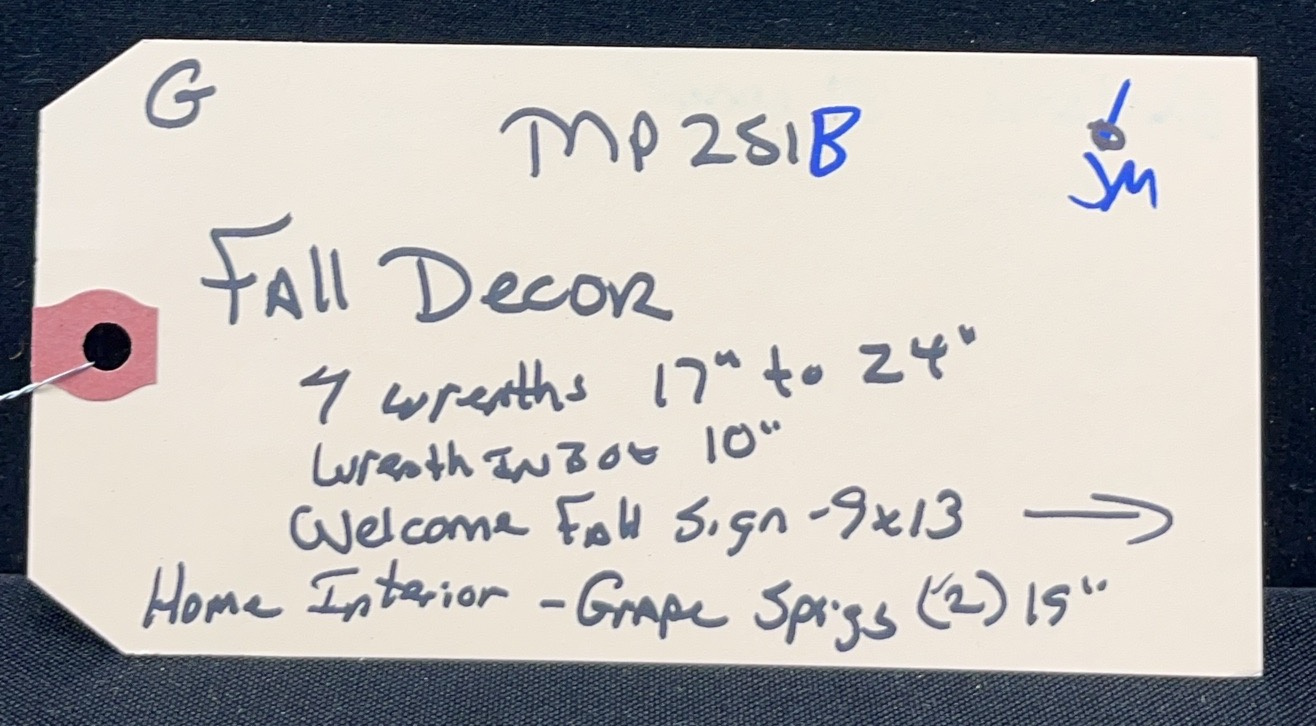 G
MP251B
JM
Fall Decor
4 wreaths 17" to 24"
Wreath IN Box 10"
Welcome Fall Sign - 9x13 →
Home Interior - Grape Sprigs (2) 15"